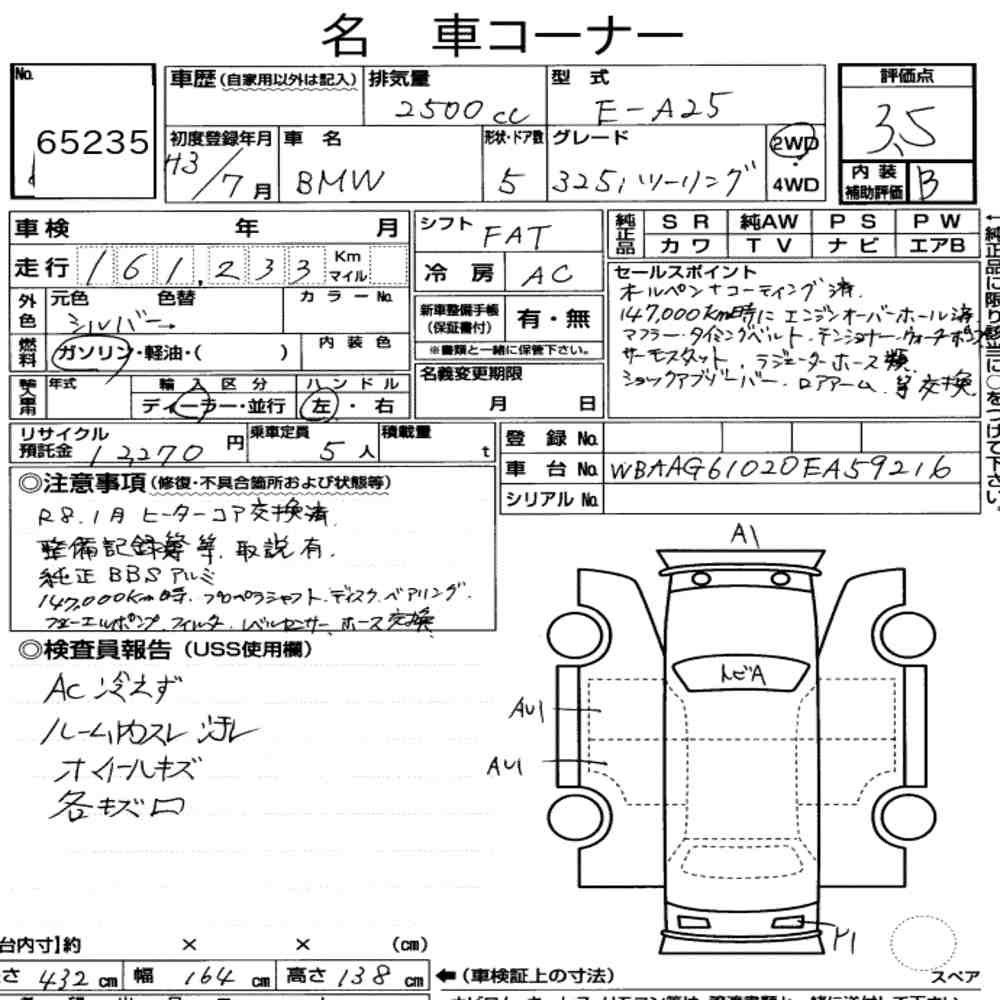 名 車コーナー
No. 65235
車歴(自家用以外は記入) 排気量 2500cc 型式 E-A25
評価点 3,5
初度登録年月 H3/7月 車名 BMW 形状・ドア数 5 グレード 325i ツーリング 2WD・4WD
内装補助評価 B
車検 年 月
シフト FAT
純正品 SR 純AW PS PW
カワ TV ナビ エアB
走行 161,233 Km マイル
冷房 AC
セールスポイント
オールペン+コーティング済.
147,000Km時に エンジンオーバーホール済
マフラー・タイミングベルト・テンショナー・ウォーターポンプ
サーモスタット. ラジエーターホース類.
ショックアブソーバー. ロアアーム. 等交換.
外色 元色 色替 カラーNo.
シルバー→
新車整備手帳(保証書付) 有・無
※書類と一緒に保管下さい。
燃料 ガソリン・軽油・( ) 内装色
名義変更期限 月 日
輸入車用 年式 輸入区分 ハンドル
ディーラー・並行 左・右
リサイクル預託金 12,270円 乗車定員 5人 積載量 t
登録No.
車台No. WBAAG61020EA59216
シリアルNo.
←純正品に限り該当に○をつけて下さい。
◎注意事項(修復・不具合箇所および状態等)
R8.1月 ヒーターコア交換済.
整備記録簿等. 取説有.
純正BBSアルミ
147,000Km時. プロペラシャフト. ディスク. ベアリング.
フューエルポンプ. フィルター. レベルセンサー. ホース交換
◎検査員報告(USS使用欄)
AC冷えず
ルーム内スレ 汚レ
ホイールキズ
各キズ凹
A1
トビA
AU1
AU1
台内寸】約 × × (cm)
さ 432cm 幅 164cm 高さ 138cm
←(車検証上の寸法)
スペア